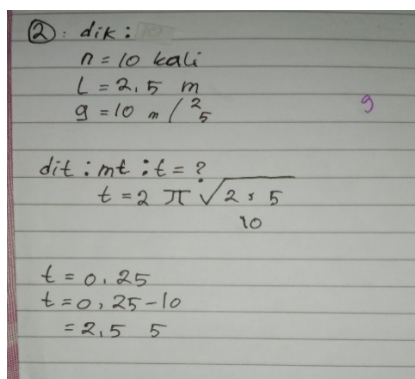 2: dik:
n = 10 kali
L = 2,5 m
g = 10 m/2
5
g
dit : mt : t = ?
t = 2 π √2,5
10
t = 0,25
t = 0,25-10
= 2,5 5